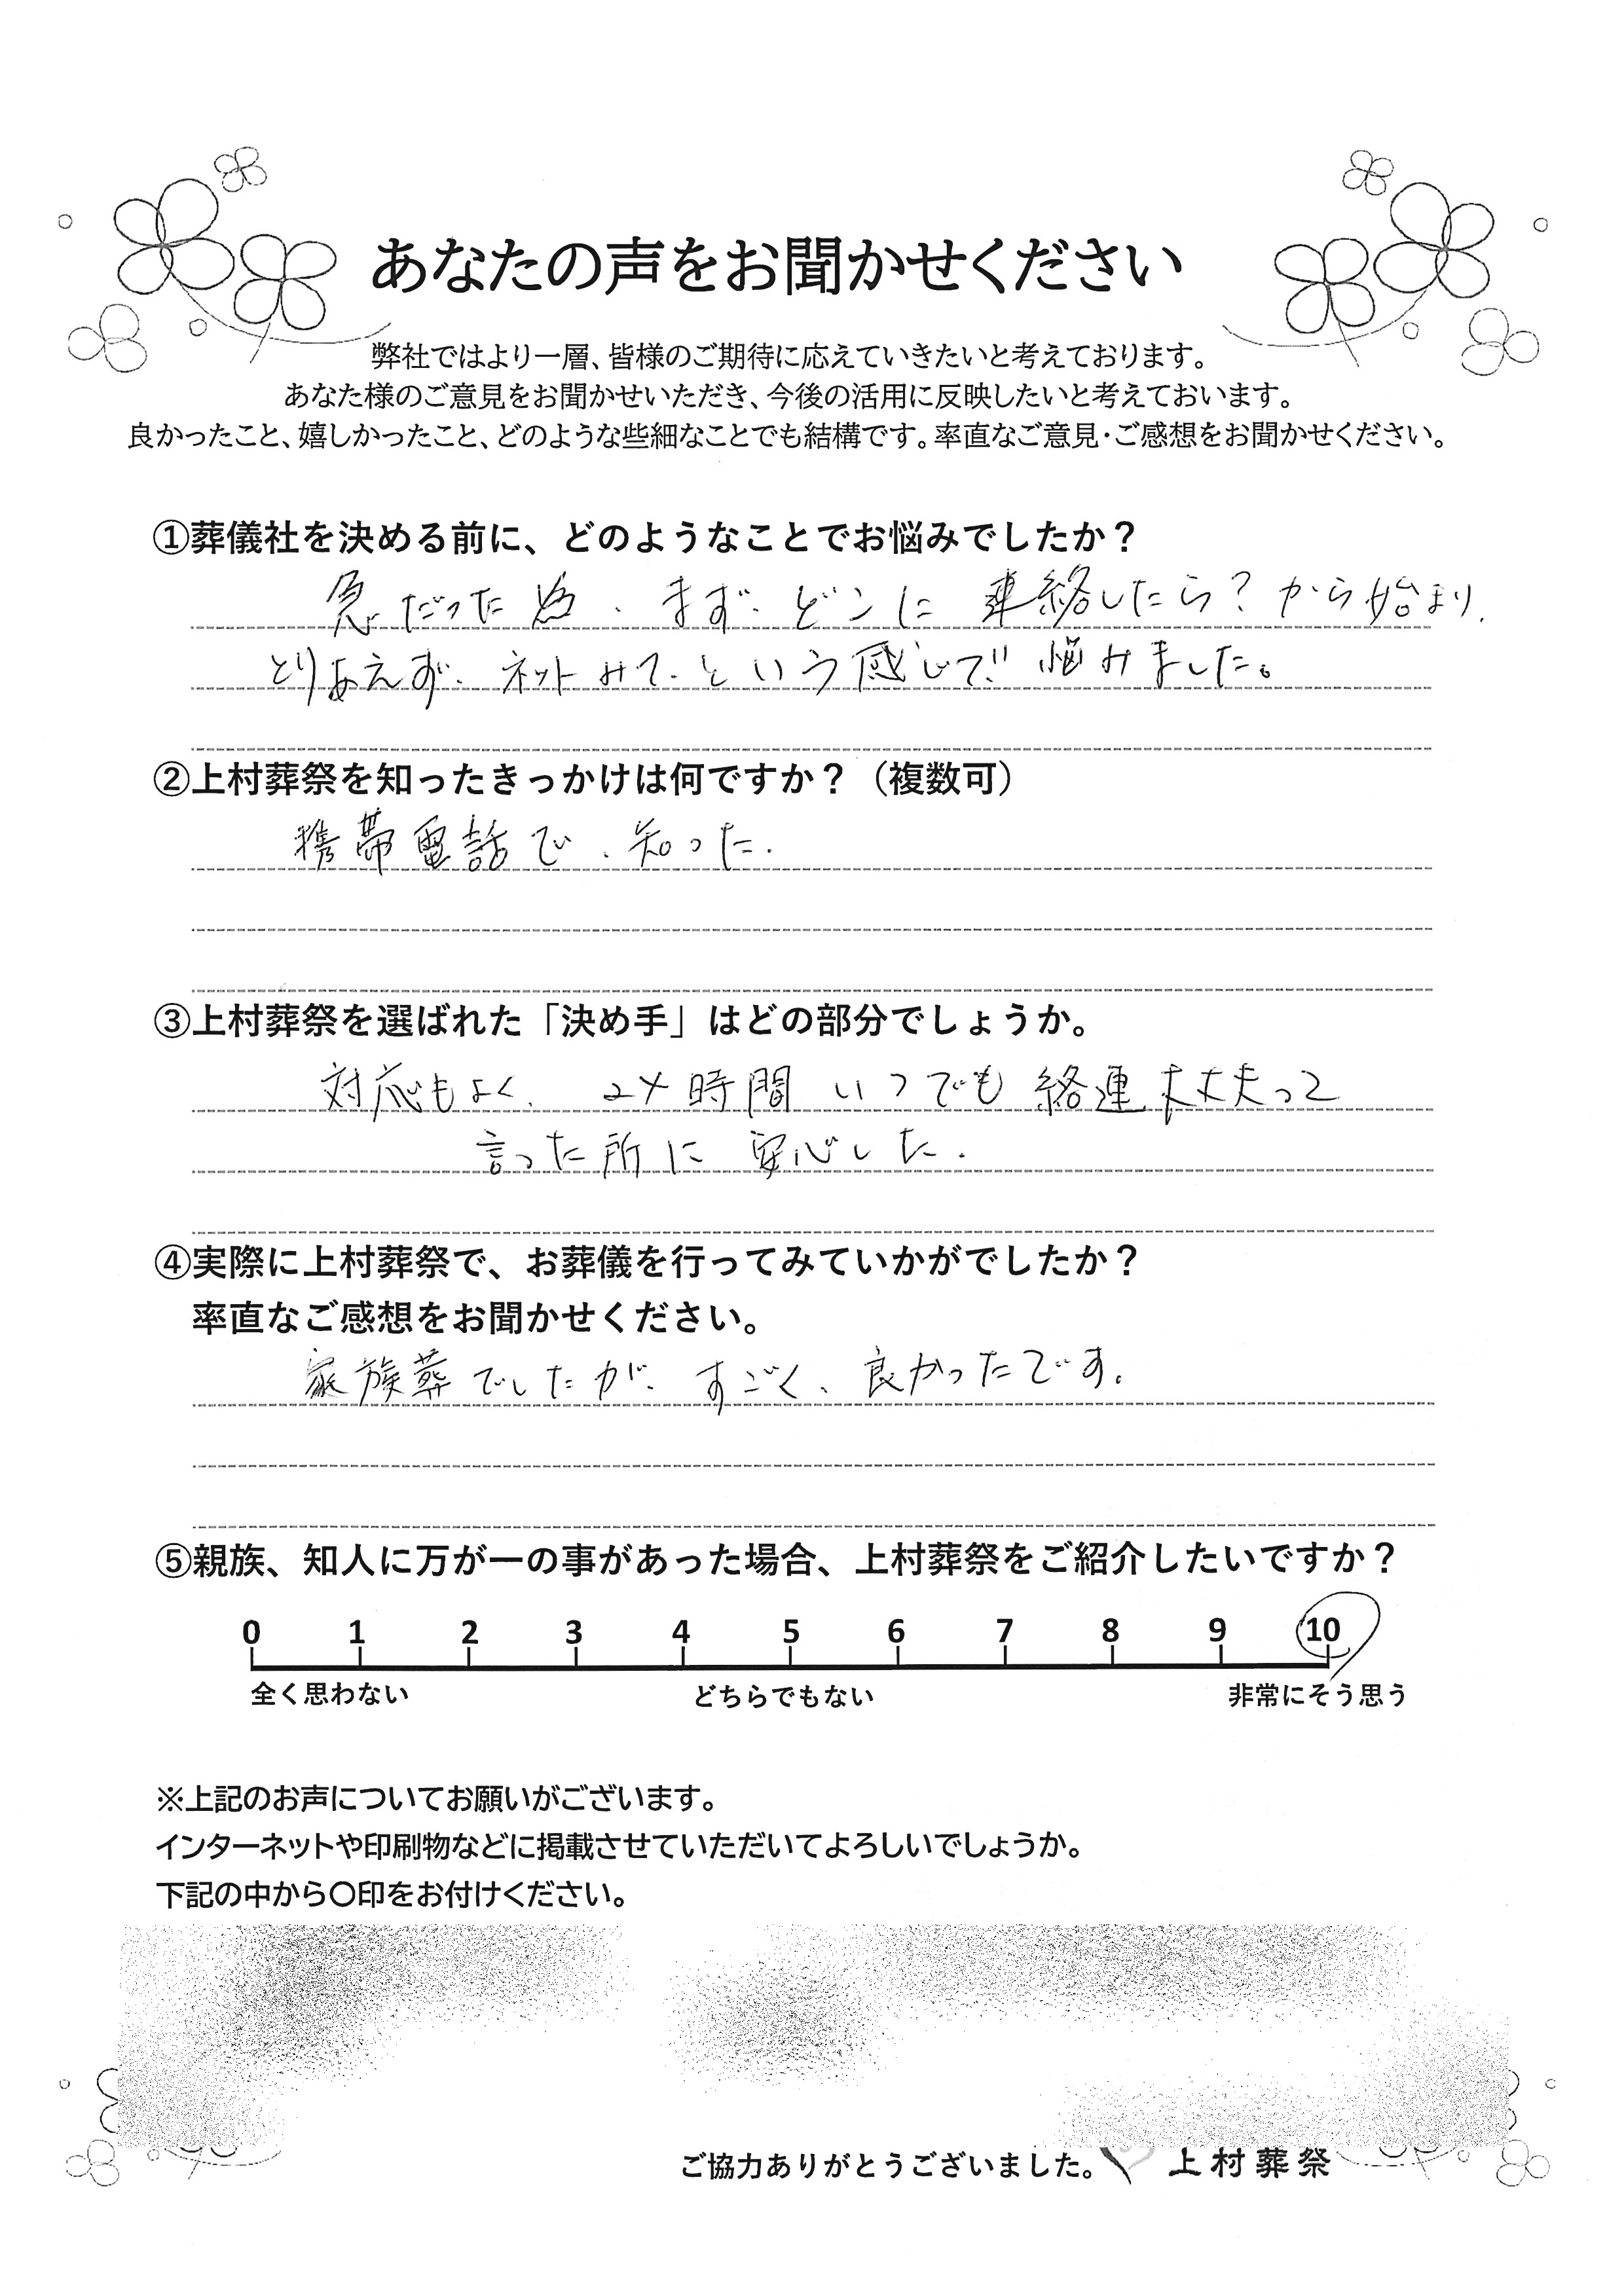 あなたの声をお聞かせください
弊社ではより一層、皆様のご期待に応えていきたいと考えております。
あなた様のご意見をお聞かせいただき、今後の活用に反映したいと考えておいます。
良かったこと、嬉しかったこと、どのような些細なことでも結構です。率直なご意見・ご感想をお聞かせください。
①葬儀社を決める前に、どのようなことでお悩みでしたか？
急だった為、まず、どこに連絡したら？から始まり、
とりあえず、ネットみて、という感じで悩みました。
②上村葬祭を知ったきっかけは何ですか？（複数可）
携帯電話で、知った.
③上村葬祭を選ばれた「決め手」はどの部分でしょうか。
対応もよく、24時間 いつでも 絡連大丈夫って
言った所に 安心した.
④実際に上村葬祭で、お葬儀を行ってみていかがでしたか？
率直なご感想をお聞かせください。
家族葬でしたが、すごく、良かったです。
⑤親族、知人に万が一の事があった場合、上村葬祭をご紹介したいですか？
0 1 2 3 4 5 6 7 8 9 10
全く思わない どちらでもない 非常にそう思う
※上記のお声についてお願いがございます。
インターネットや印刷物などに掲載させていただいてよろしいでしょうか。
下記の中から〇印をお付けください。
ご協力ありがとうございました。 上村葬祭